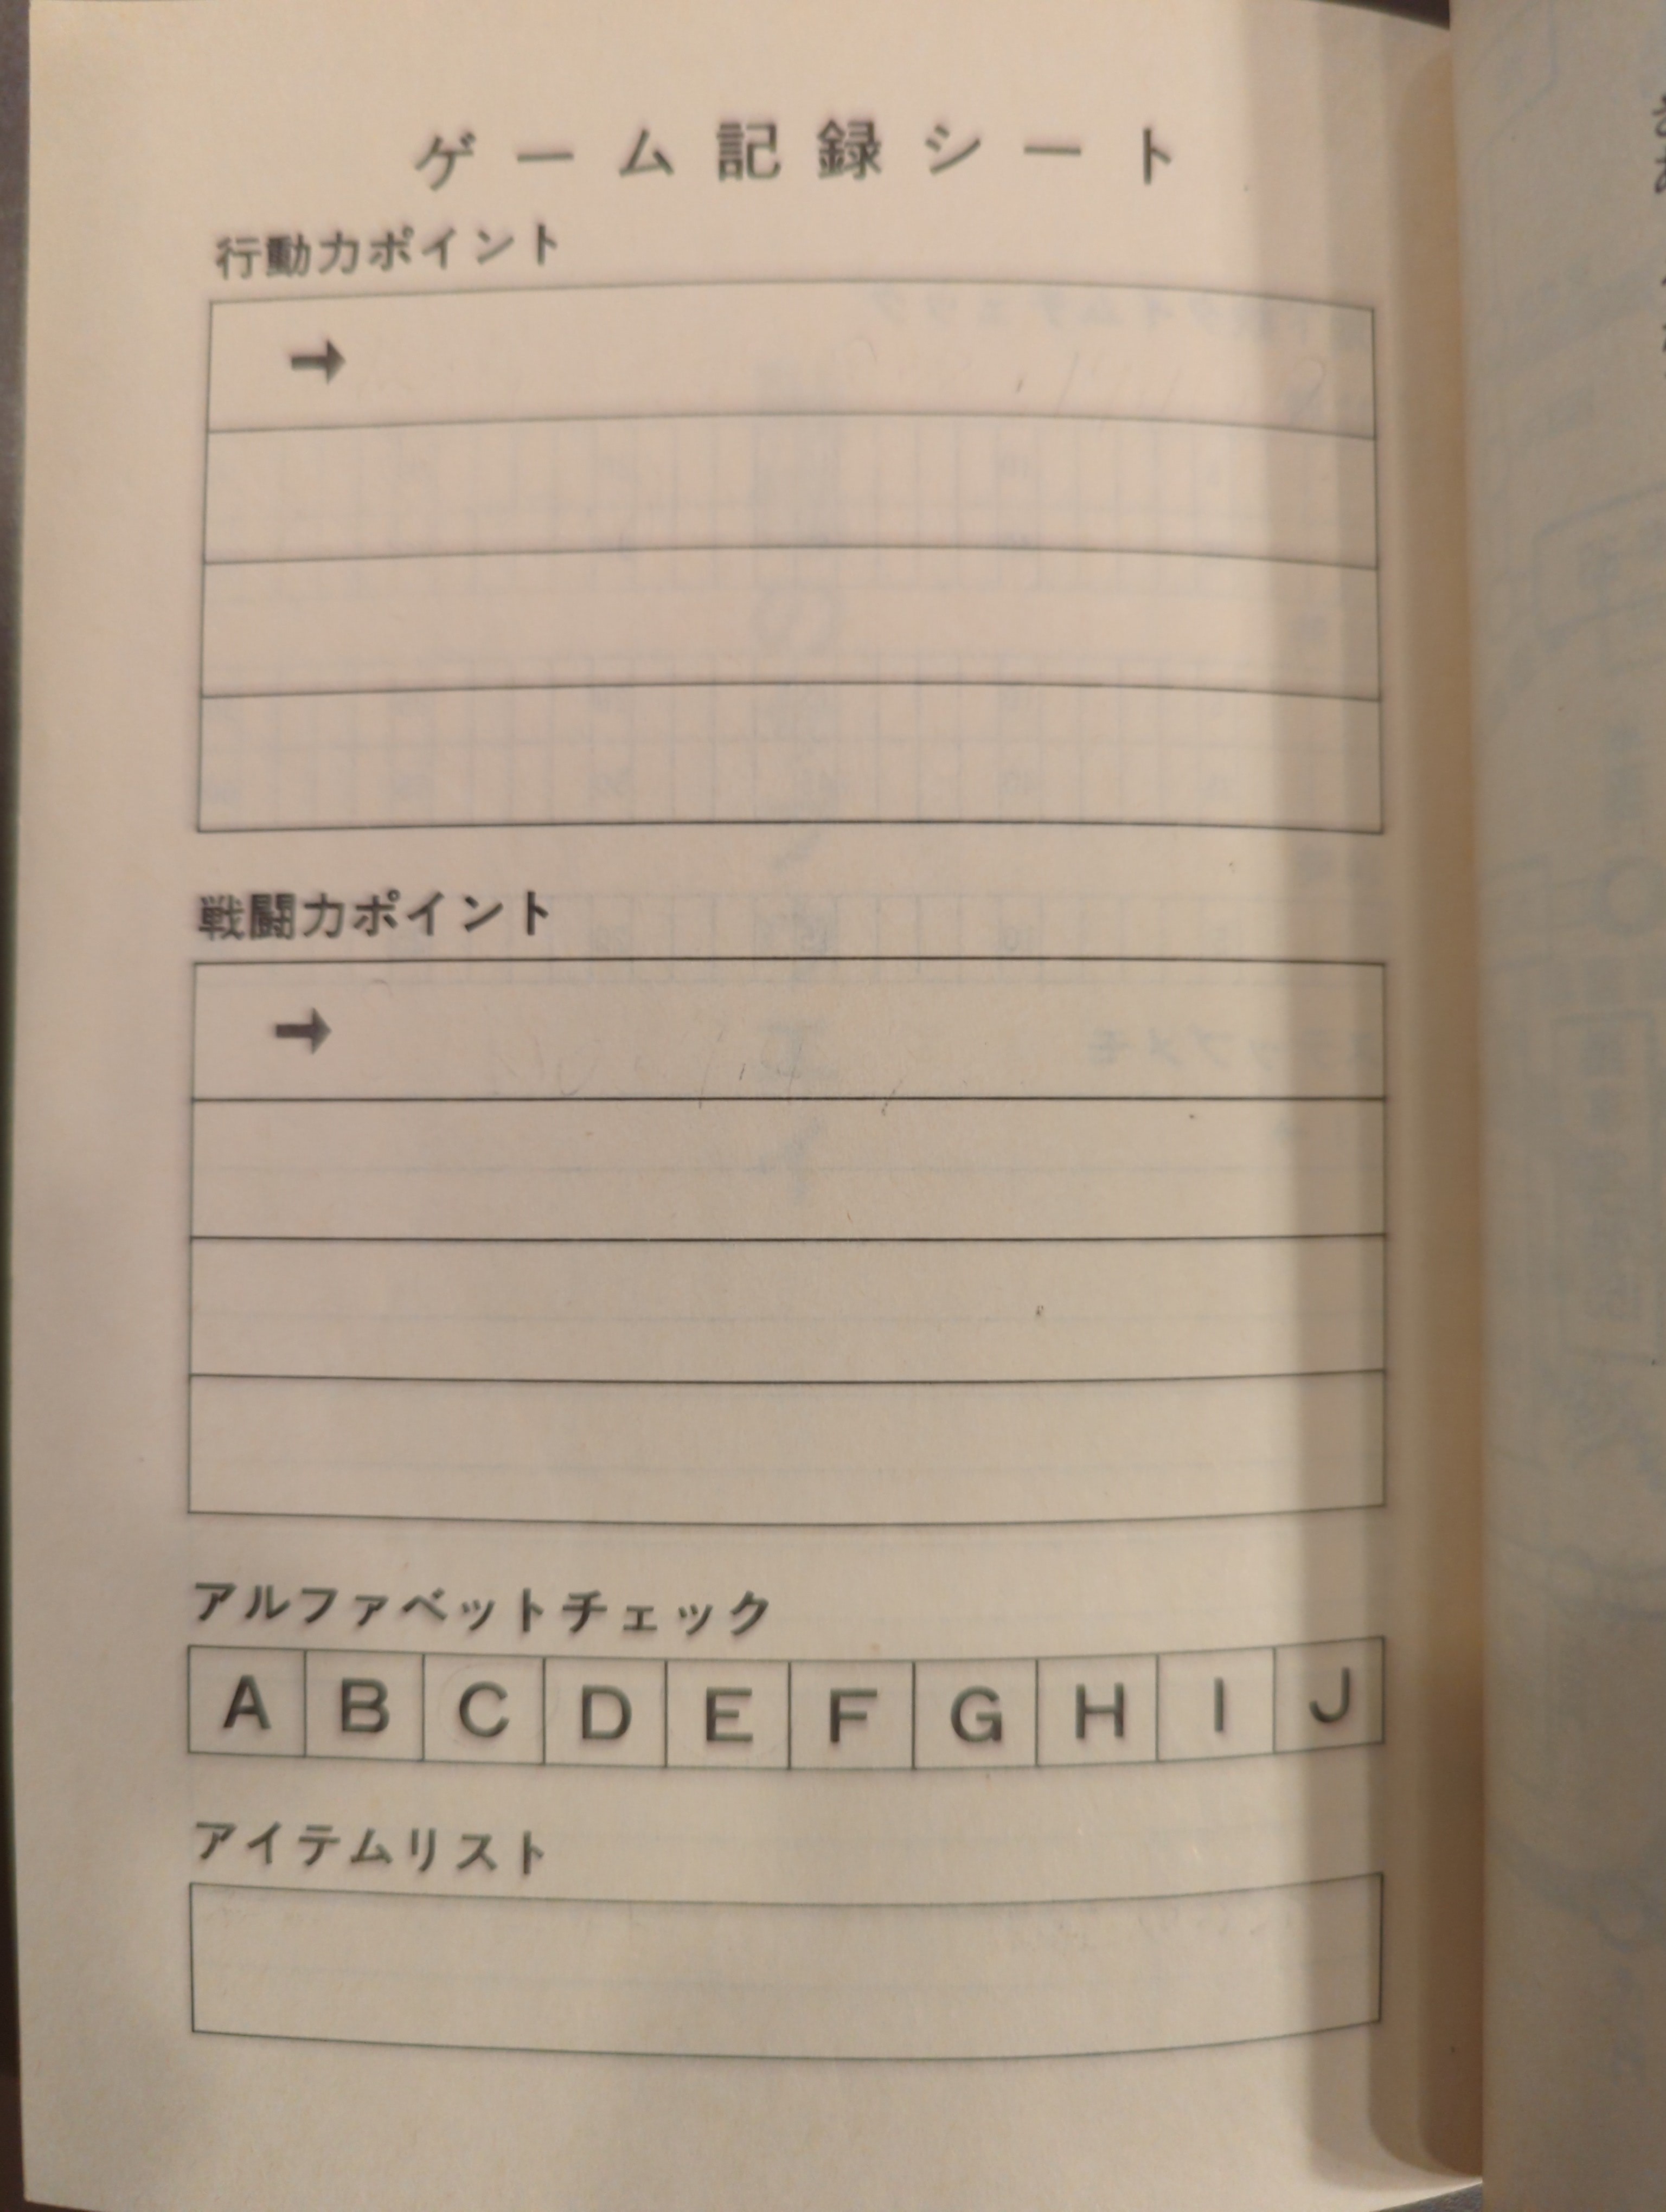 ゲーム記録シート
行動力ポイント
→
戦闘力ポイント
→
アルファベットチェック
A B C D E F G H I J
アイテムリスト